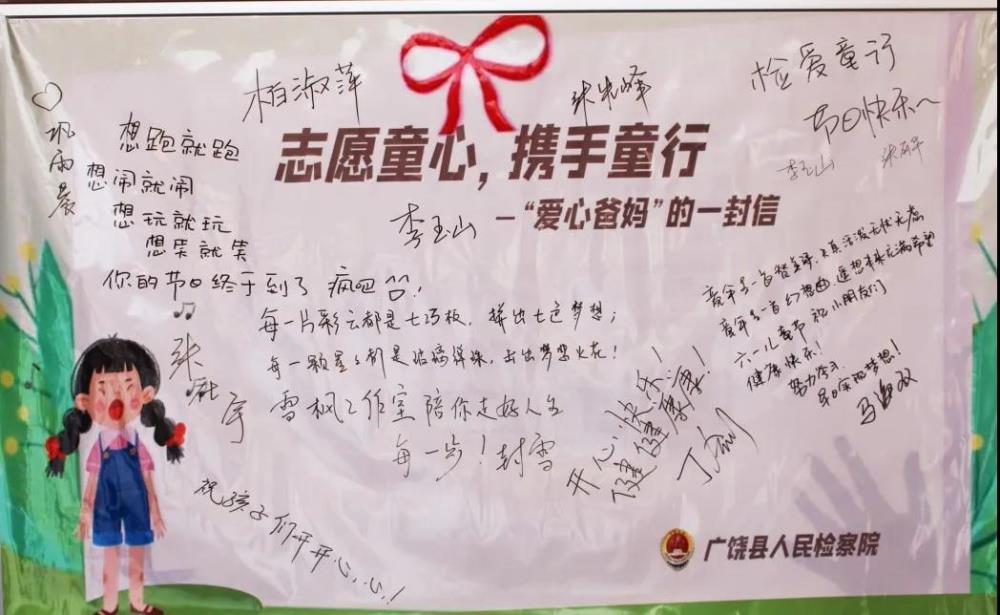 柏淑萍
张光峰
检爱童行
节日快乐
志愿童心，携手童行
—“爱心爸妈”的一封信
李玉山
李玉山
巩雨晨
想跑就跑
想闹就闹
想玩就玩
想笑就笑
你的节日终于到了 疯吧！
每一片彩云都是七巧板，拼出七色梦想；
每一颗星星都是玻璃弹珠，击出梦想火花！
雪枫工作室陪你走好人生
每一步！封雪
开心快乐！
健健康康！
童年是一首幻想曲，遐想未来充满希望
六一儿童节祝小朋友们
健康快乐！
早日实现梦想！
祝孩子们开开心心！
广饶县人民检察院